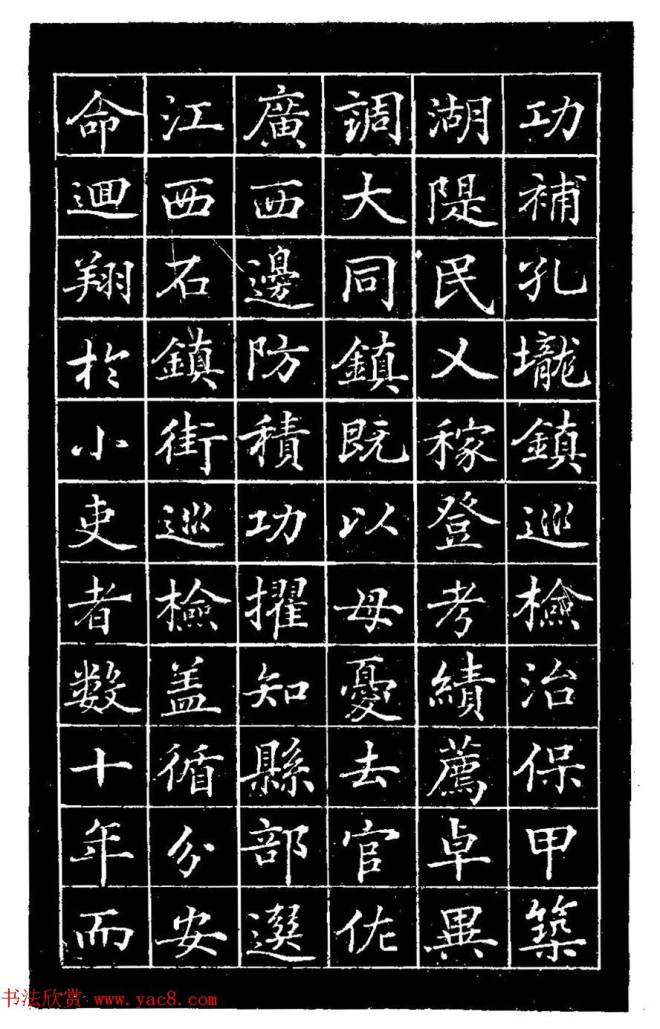 功補孔壠鎮巡檢治保甲築
湖隄民乂稼登考績薦卓異
調大同鎮既以母憂去官佐
廣西邊防積功擢知縣部選
江西石鎮街巡檢蓋循分安
命迴翔於小吏者數十年而
书法欣赏 www.yac8.com